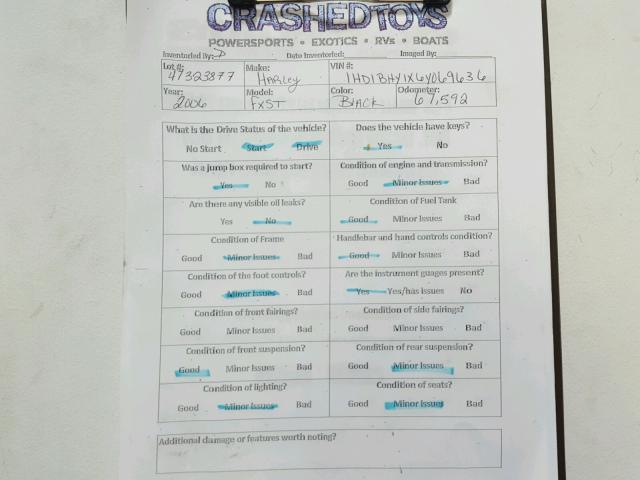 CRASHEDTOYS
POWERSPORTS • EXOTICS • RVs • BOATS
Inventoried By: Date Inventoried: Imaged By:
Lot #: Make: VIN #:
47323877 HARley 1HD1BHY1X6Y069636
Year: Model: Color: Odometer:
2006 FXST BlACK 67,592
What is the Drive Status of the vehicle? Does the vehicle have keys?
No Start Start Drive Yes No
Was a jump box required to start? Condition of engine and transmission?
Yes No Good Minor Issues Bad
Are there any visible oil leaks? Condition of Fuel Tank
Yes No Good Minor Issues Bad
Condition of Frame Handlebar and hand controls condition?
Good Minor Issues Bad Good Minor Issues Bad
Condition of the foot controls? Are the instrument guages present?
Good Minor Issues Bad Yes Yes/has issues No
Condition of front fairings? Condition of side fairings?
Good Minor Issues Bad Good Minor Issues Bad
Condition of front suspension? Condition of rear suspension?
Good Minor Issues Bad Good Minor Issues Bad
Condition of lighting? Condition of seats?
Good Minor Issues Bad Good Minor Issues Bad
Additional damage or features worth noting?